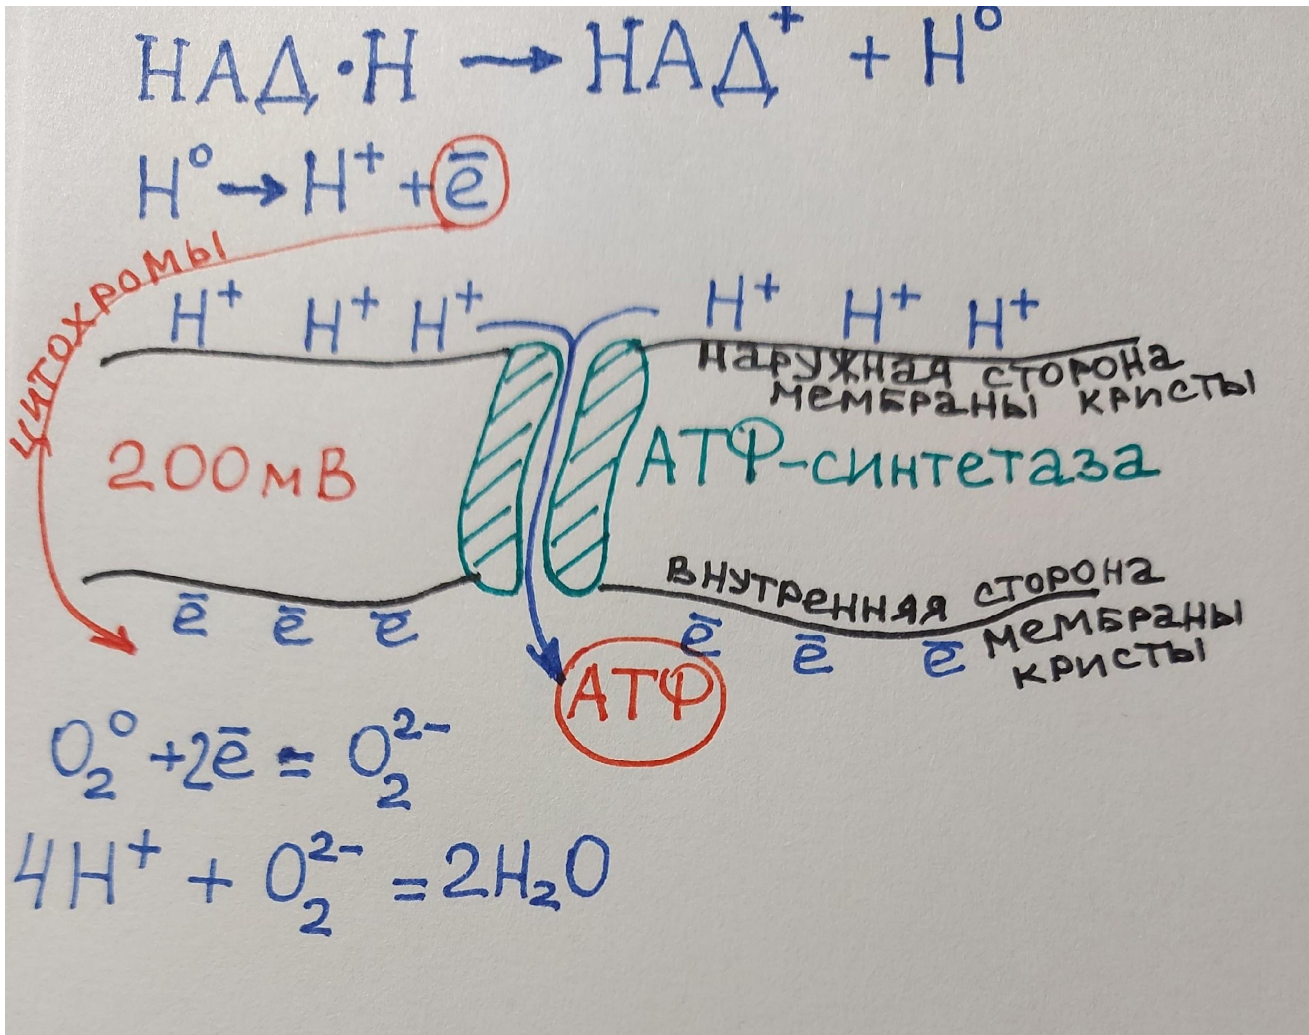 НАД·Н → НАД⁺ + Н⁰
Н⁰ → Н⁺ + ē
цитохромы
Н⁺ Н⁺ Н⁺ Н⁺ Н⁺ Н⁺
наружная сторона
мембраны кристы
200мВ
АТФ-синтетаза
внутренняя сторона
мембраны
кристы
ē ē ē ē ē ē
АТФ
O₂⁰ +2ē = O₂²⁻
4H⁺ + O₂²⁻ = 2H₂O